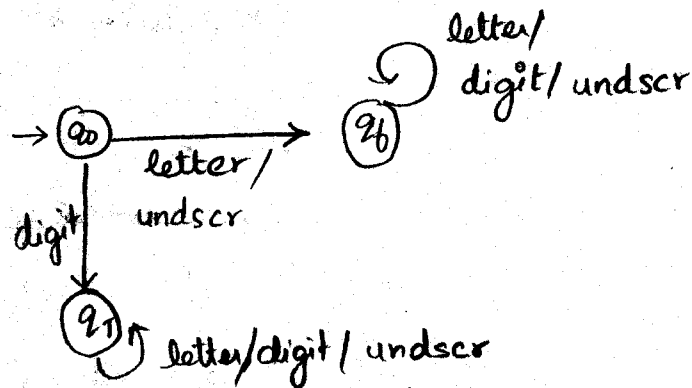 letter/
digit/undscr
q0
qf
letter/
undscr
digit
qT
letter/digit/undscr